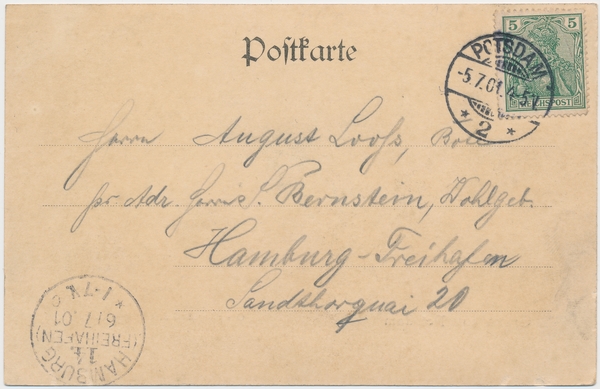 Postkarte
5 5
REICHSPOST
POTSDAM
-5.7.01. 4-5N.
* 2 *
Herrn August Looß,
pr Adr. Herrn S. Bernstein, Wohlgeb.
Hamburg-Freihafen
Sandthorquai 20
HAMBURG
(FREIHAFEN)
6/7.01
* 1-7V.